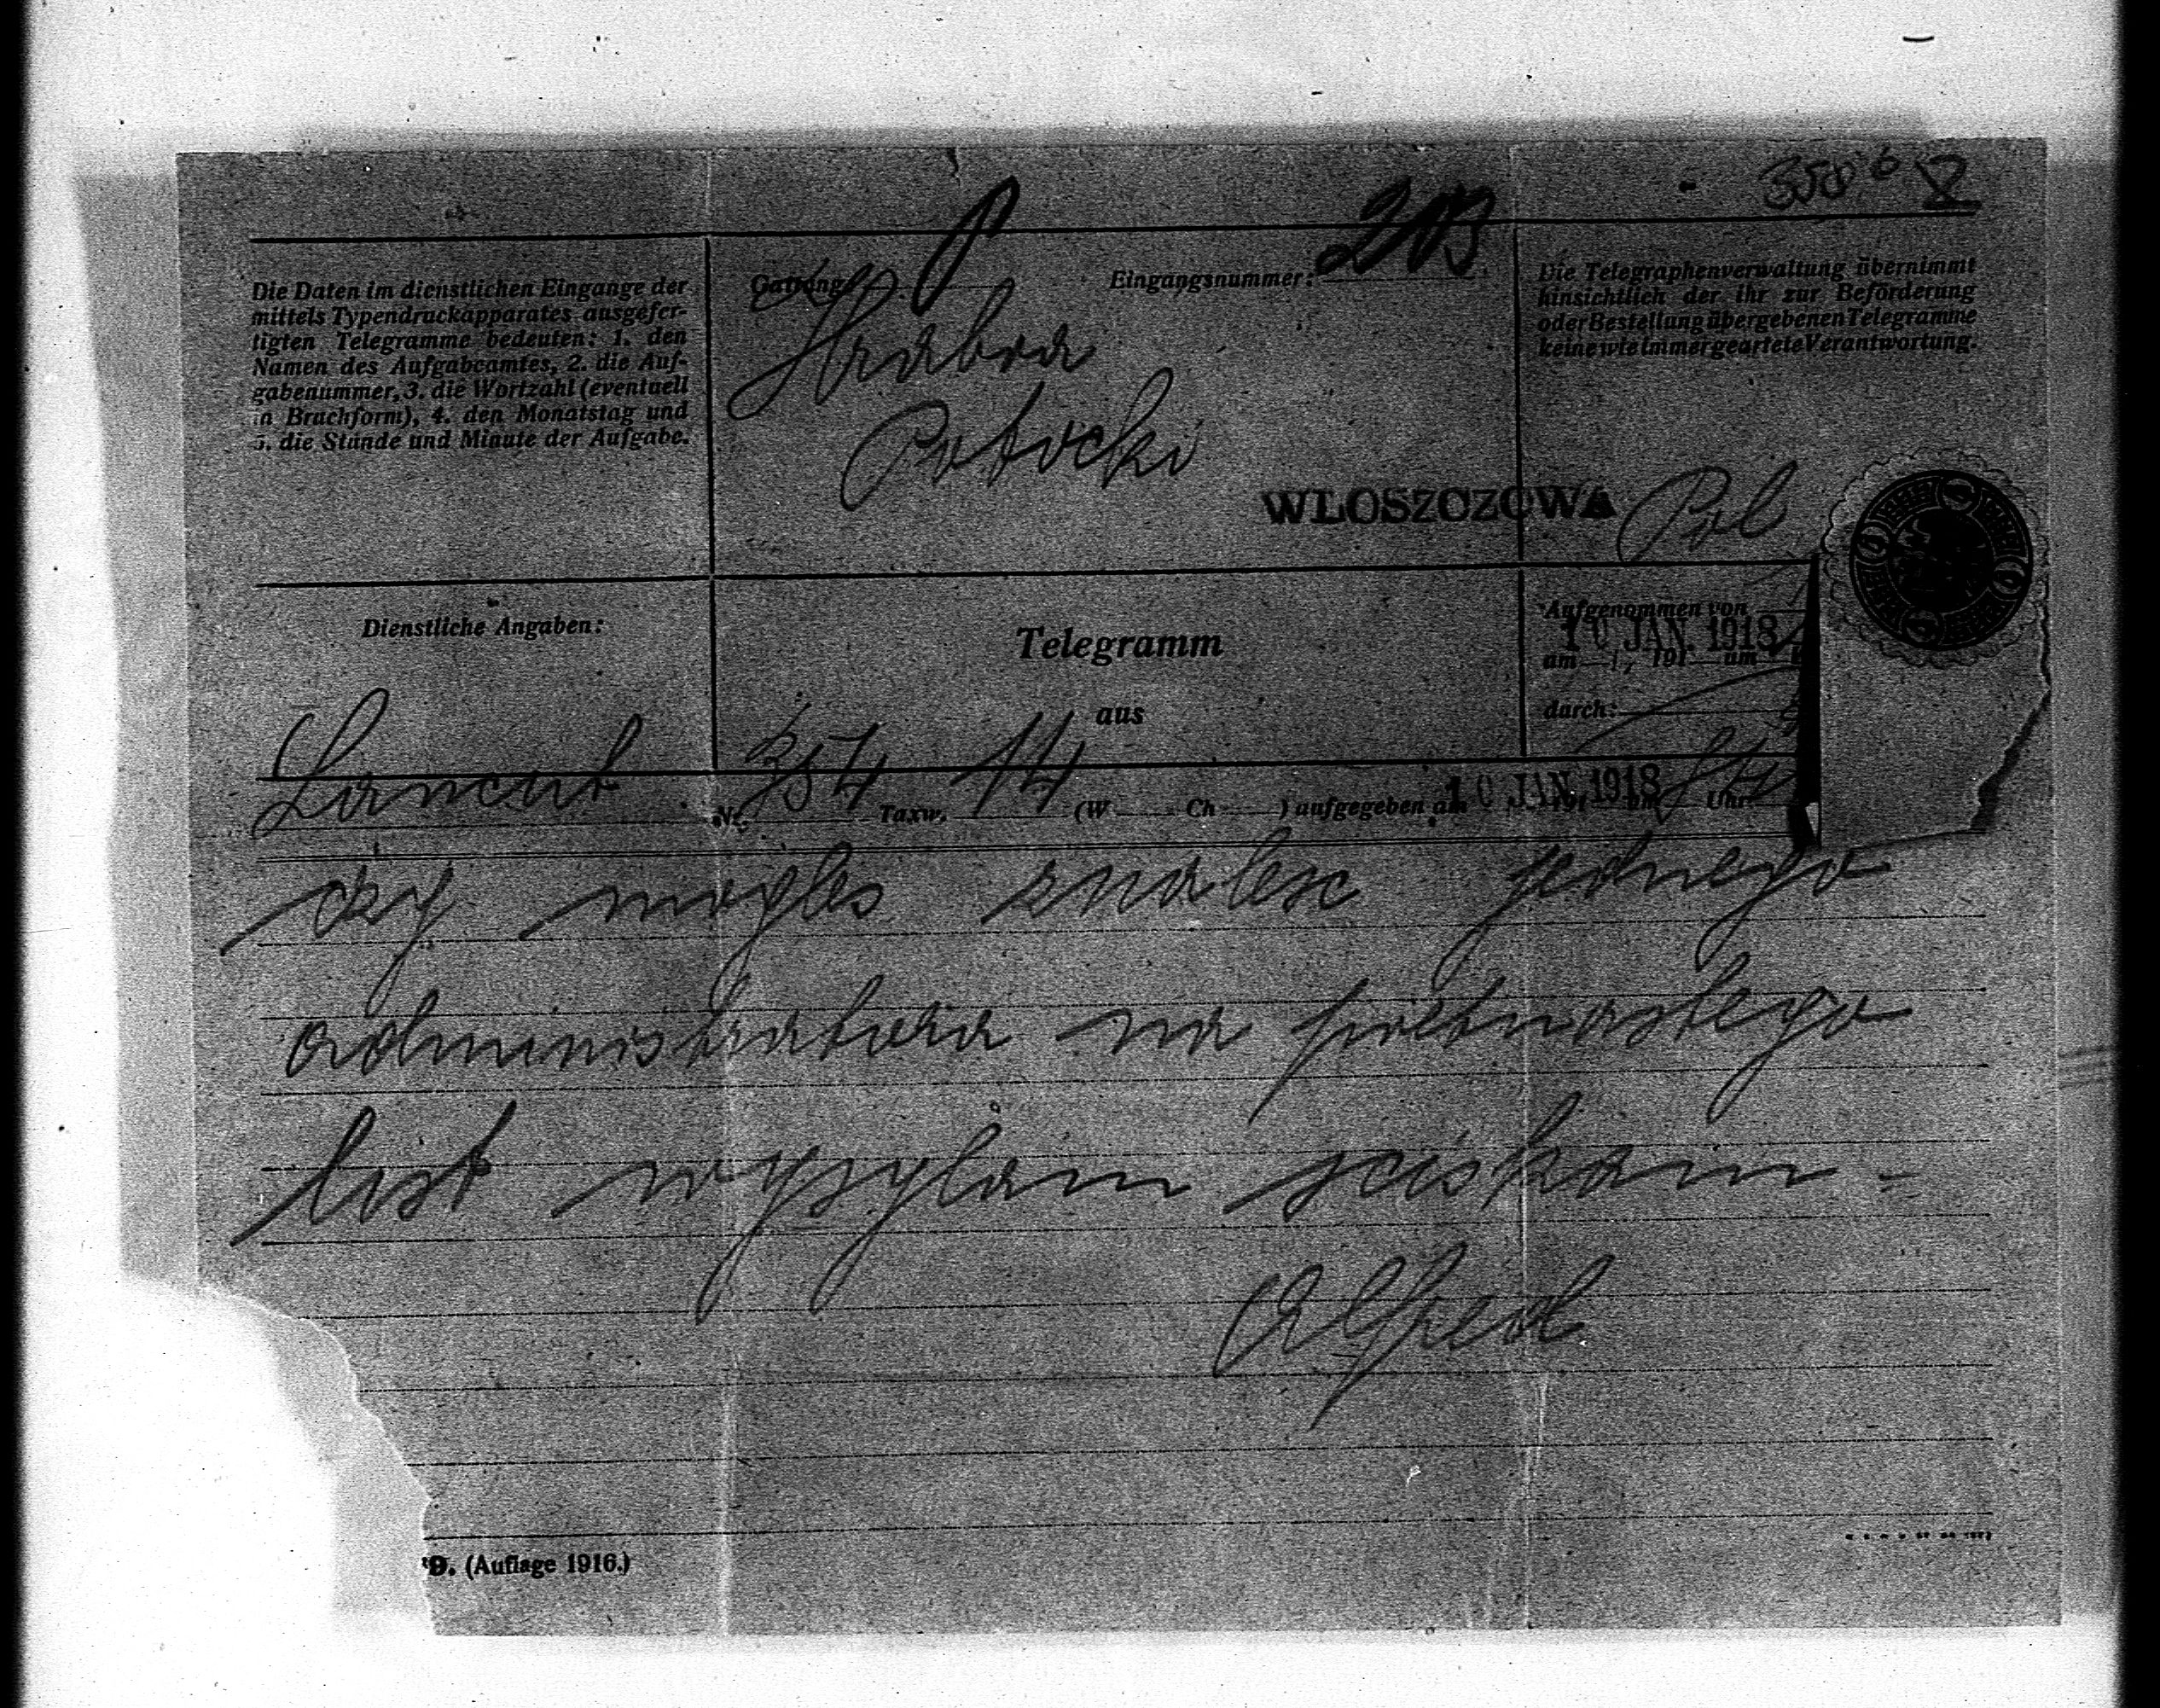 358 6 X
Gattung: P Eingangsnummer: 203
Die Daten im dienstlichen Eingange der
mittels Typendruckapparates ausgefer-
tigten Telegramme bedeuten: 1. den
Namen des Aufgabeamtes, 2. die Auf-
gabenummer, 3. die Wortzahl (eventuell
in Bruchform), 4. den Monatstag und
5. die Stunde und Minute der Aufgabe.
Hrabia
Potocki
WLOSZCZOWA Pol
Die Telegraphenverwaltung übernimmt
hinsichtlich der ihr zur Beförderung
oder Bestellung übergebenen Telegramme
keine wie immer geartete Verantwortung.
Dienstliche Angaben:
Telegramm
aus
Aufgenommen von
10 JAN. 1918
am /, 191 um
durch:
Lancut Nr. 354 Taxw. 14 (W Ch ) aufgegeben am 10 JAN. 1918 um Uhr
czy mogles znalesc jednego
administratora na pietnastego
list wysylam sciskam -
Alfred
9. (Auflage 1916.)